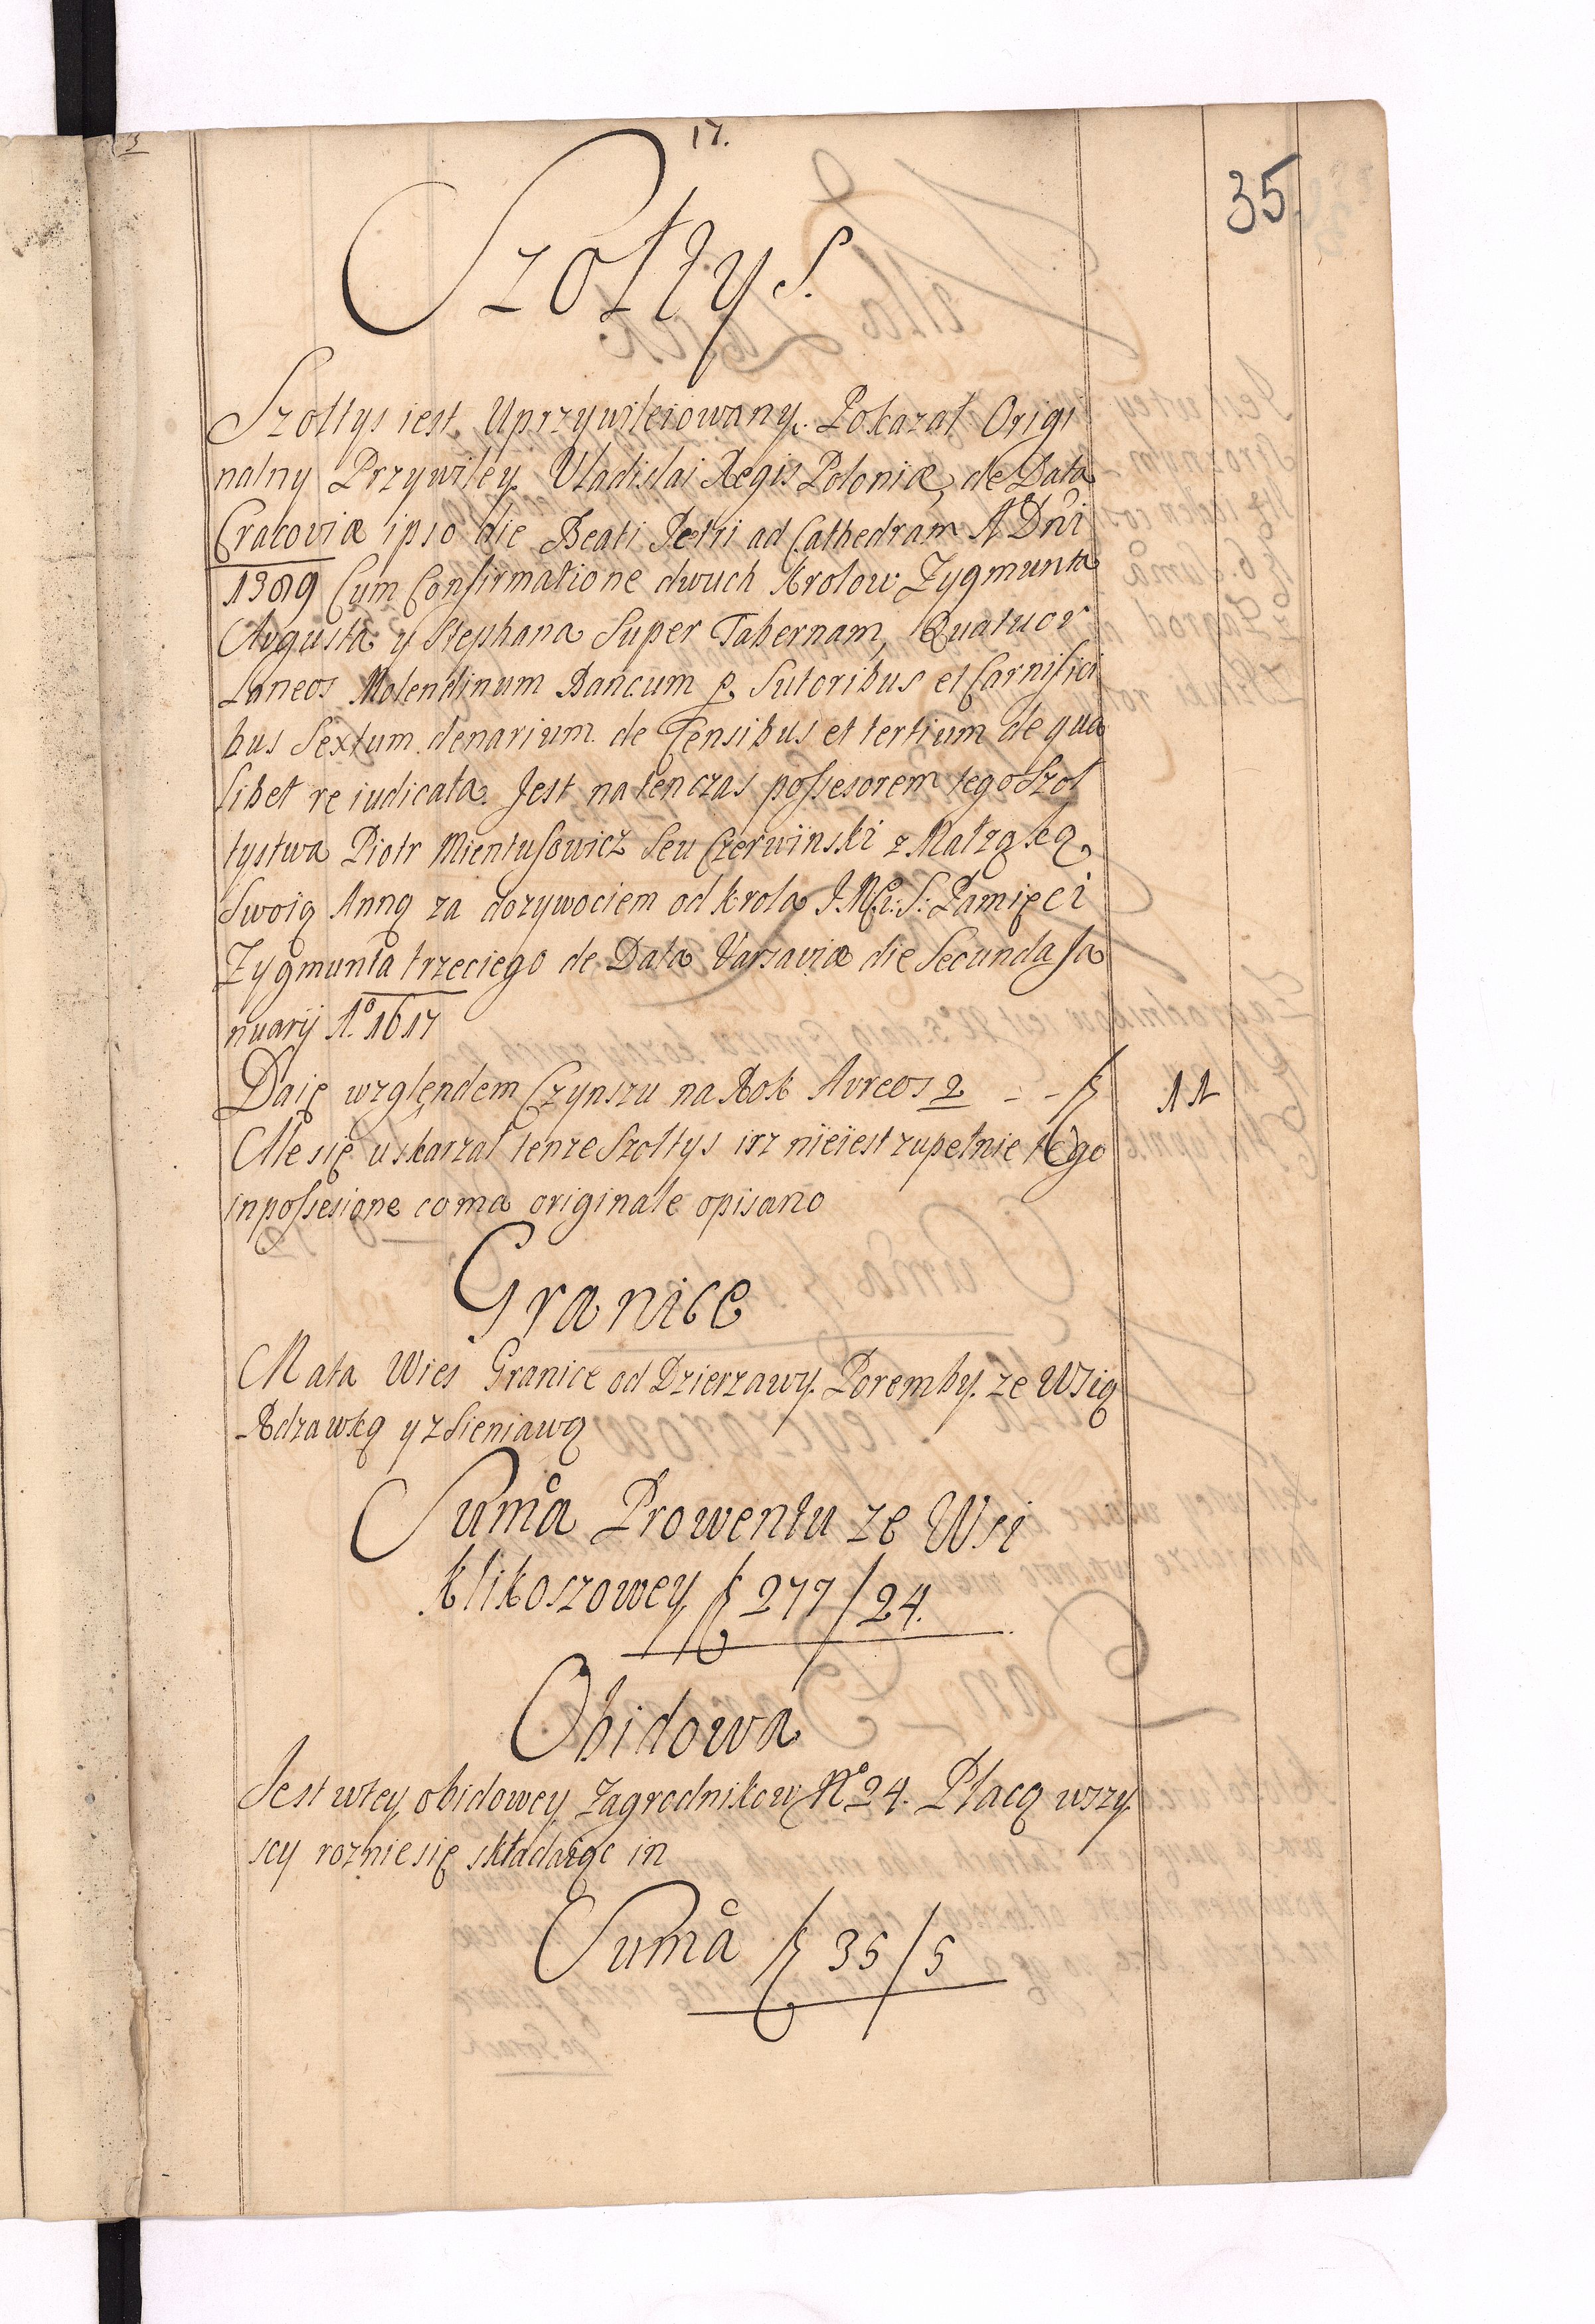 17.
35
Szołtys.
Szoltys iest Uprzywileiowany. Pokazał Origi
nalny Przywiley Vladislai Regis Poloniæ, de Data
Cracoviæ ipso die Beati Petri ad Cathedram A Dni
1389 Cum Confirmatione dwuch Krolow Zygmunta
Augusta y Stephana Super Tabernam, Quatuor
Laneos Molendinum Bancum p. Sutoribus et Carnifici
bus Sextum denarium de Censibus et tertium de qua
libet re iudicata. Jest natenczas possesorem tego Szoł
tystwa Piotr Mientusowicz Seu Czerwinski z Małząką
Swoią Anną za dozywociem od Krola S. Pamięci
Zygmunta trzeciego de Data Varsaviæ die Secunda Ja
nuarij Aº 1617
Daię wzglęndem Czynszu na Rok Avreos 2 - - f 11
Ale się uskarzał tenze Szołtys isz nieiest zupełnie tego
inpossesione co ma originale opisano
Granice
Mała Wies Granice od Dzierzawy Poremby ze Wsią
Rdzawką y z Sieniawą
Suma Prowentu ze Wsi
Klikoszowey f 277/24.
Obidowa
Jest wtey obidowey Zagrodnikow Nº 24. Płacą wszy
scy roznie się składaiąc in
Suma f 35/5